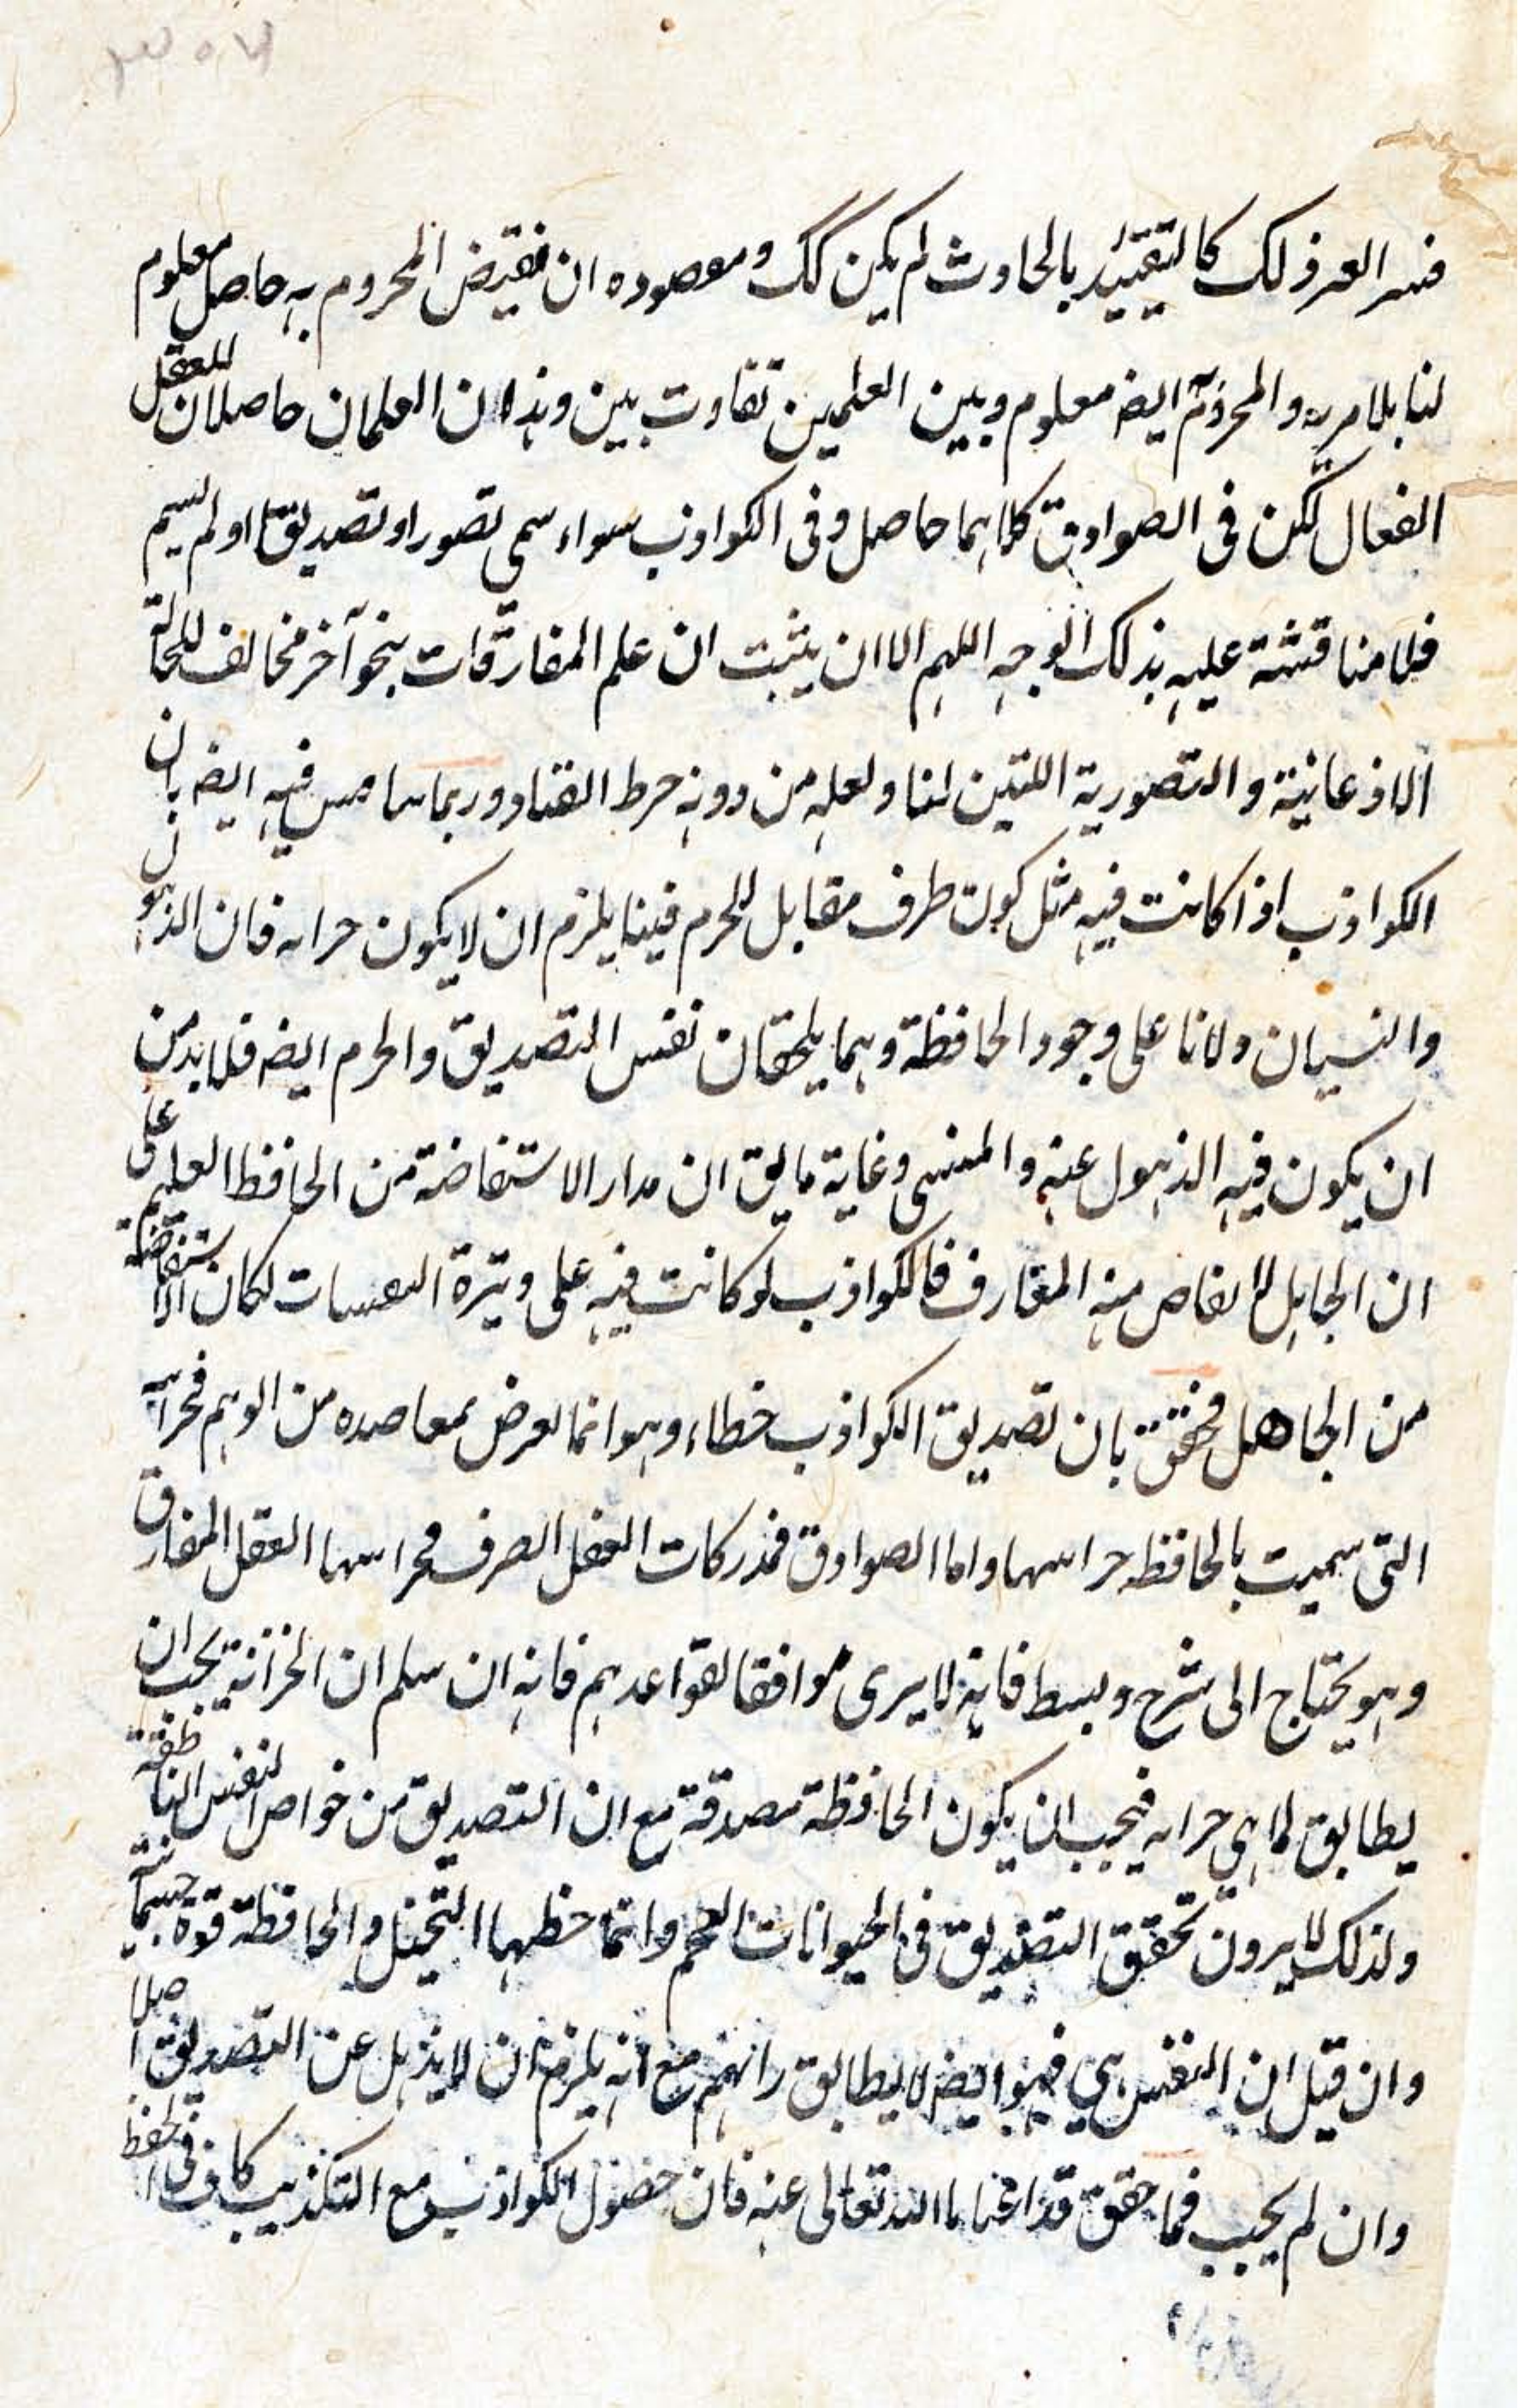 فسر العرذلك كالتقييد بالحادث لم يكن كك ومعصوده ان نقيض المجزوم به حاصل معلوم
لنا بلا مريه والمجزوم ايضه معلوم وبين العلمين تفاوت بين وهذا ان العلمان حاصلان للعقل
الفعال لكن فى الصوادق كلاهما حاصل وفى الكواذب سواء سمى تصورا وتصديقا اولم يسم
فلا مناقشة عليه بذلك الوجه اللهم الا ان يثبت ان علم المفارقات بنحو آخر مخالف للحالة
الاذعانية والتصورية اللتين لنا ولعله من دونه خرط القتاد وربما يناقش فيه ايضه بان
الكواذب اذا كانت فيه مثل كون طرف مقابل للجزم فينا يلزم ان لا يكون خزانه فان الذهول
والنسيان دلانا على وجود الحافظة وهما يلحقان نفس التصديق والجزم ايضه فلا بد من
ان يكون فيه الذهول عنه والمنسى وغاية ما يق ان مدار الاستفاضة من الحافظ العليم على
ان الجاهل لا يفاض منه المعارف فالكواذب لو كانت فيه على وتيرة اليقينيات لكان الاستفاضة
من الجاهل فحقق بان تصديق الكواذب خطاء وهو انما يعرض بمعاضده من الوهم فخزانته
التى سميت بالحافظه خزانتها واما الصوادق فمدركات العقل الصرف فخزانتها العقل المفارق
وهو يحتاج الى شرح وبسط فانه لا يرى موافقا لقواعدهم فانه ان سلم ان الخزانة يجب ان
يطابق لما هي خزانه فيجب ان يكون الحافظة مصدقة مع ان التصديق من خواص النفس الناطقة
ولذلك لا يرون تحقق التصديق فى الحيوانات العجم وانما حظها التخيل والحافظة قوة جسمانية
وان قيل ان النفس هي فهو ايضه لا يطابق رايهم مع انه يلزم ان لا يذهل عن التصديق اصلا
وان لم يجب فما حقق قد اغنانا الله تعالى عنه فان حصول الكواذب مع التكذيب كاف فى الحفظ